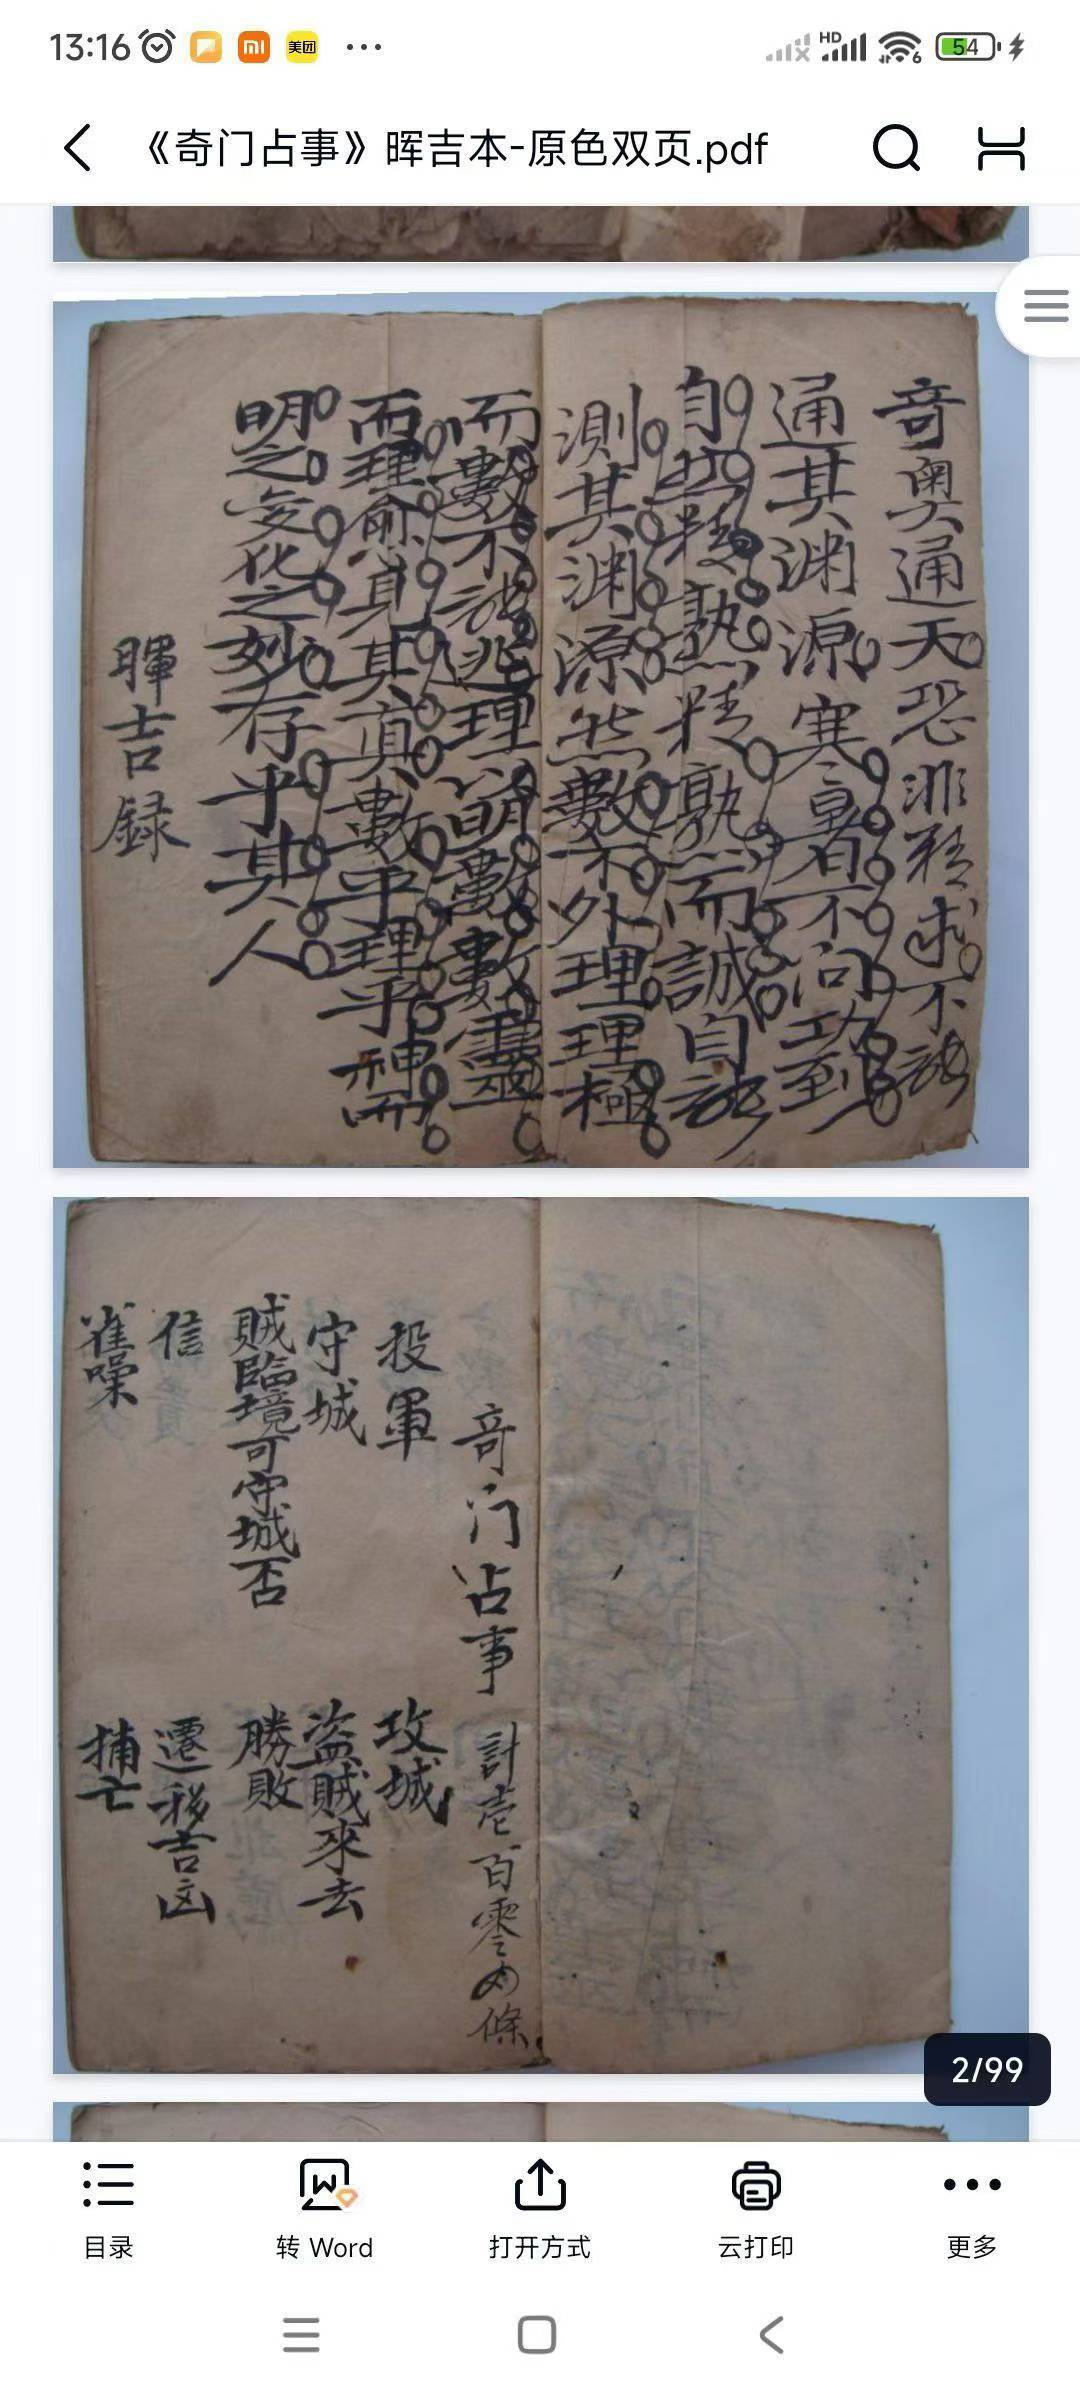 13:16
美团
HD
6
54
《奇门占事》晖吉本-原色双页.pdf
奇奧通天恐非精求不能
通其渊源寒暑不问功到
自然精熟精熟而誠自能
測其渊源然數不外理理極
而數不能逃理明數數靈
而理愈真其真數乎理乎神而
明之变化之妙存乎其人
暉吉録
奇门占事 計壱百零四條
投軍 攻城
守城 盗賊來去
賊臨境可守城否 勝敗
信 遷移吉凶
雀噪 捕亡
2/99
目录
转 Word
打开方式
云打印
更多